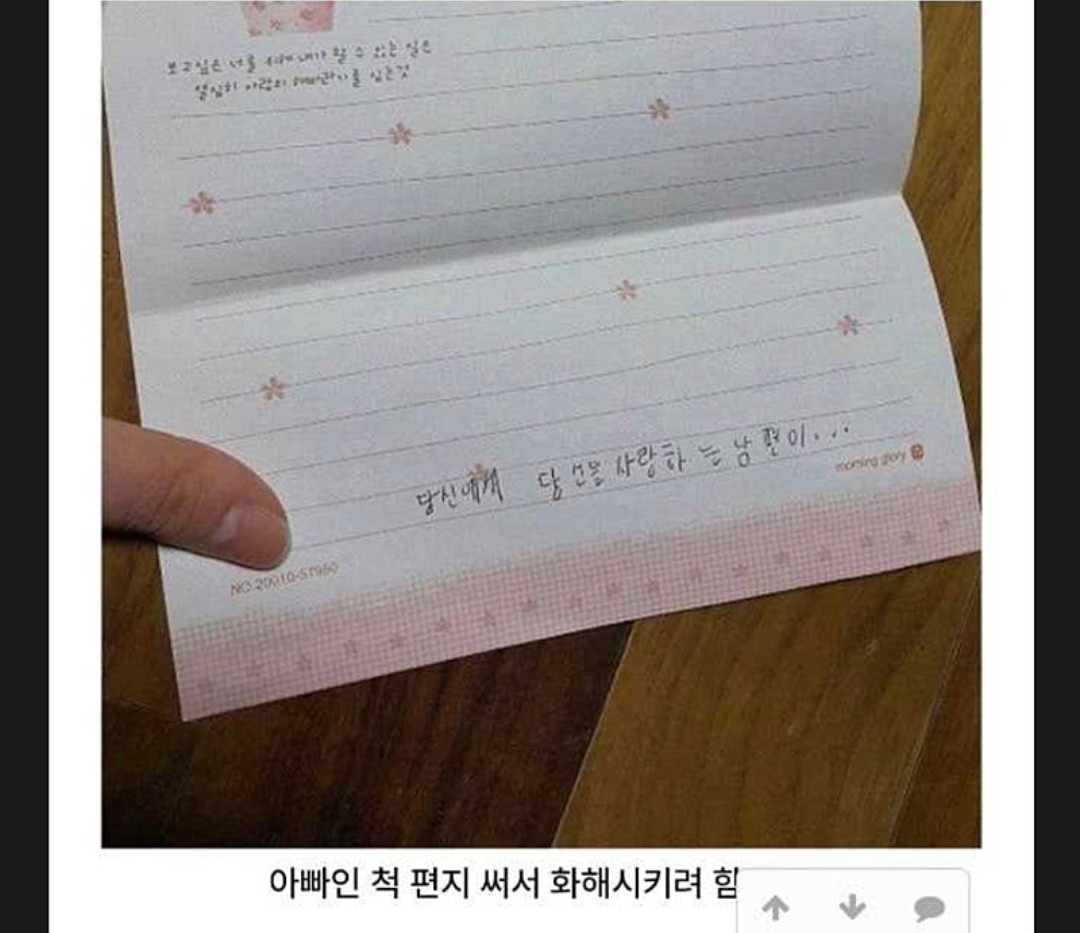 보고싶은 너를 위해 내가 할 수 있는 일은
열심히 아름의 해바라기를 심는것
당신에게 당신을 사랑하는 남편이...
morning glory
NO.20010-57950
아빠인 척 편지 써서 화해시키려 함